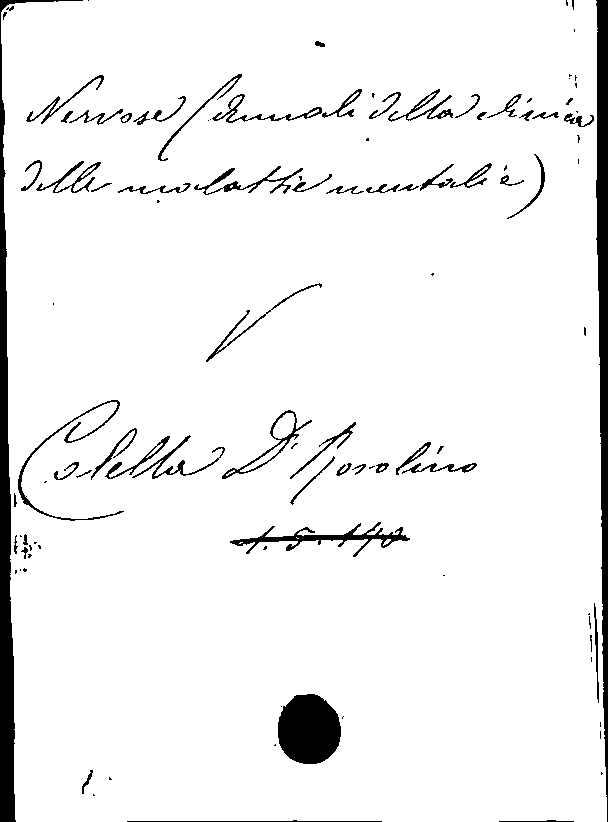 Nervose (Annali della clinica
delle malattie mentali e)
V
Colella Dr Rosolino
1. 5. 140